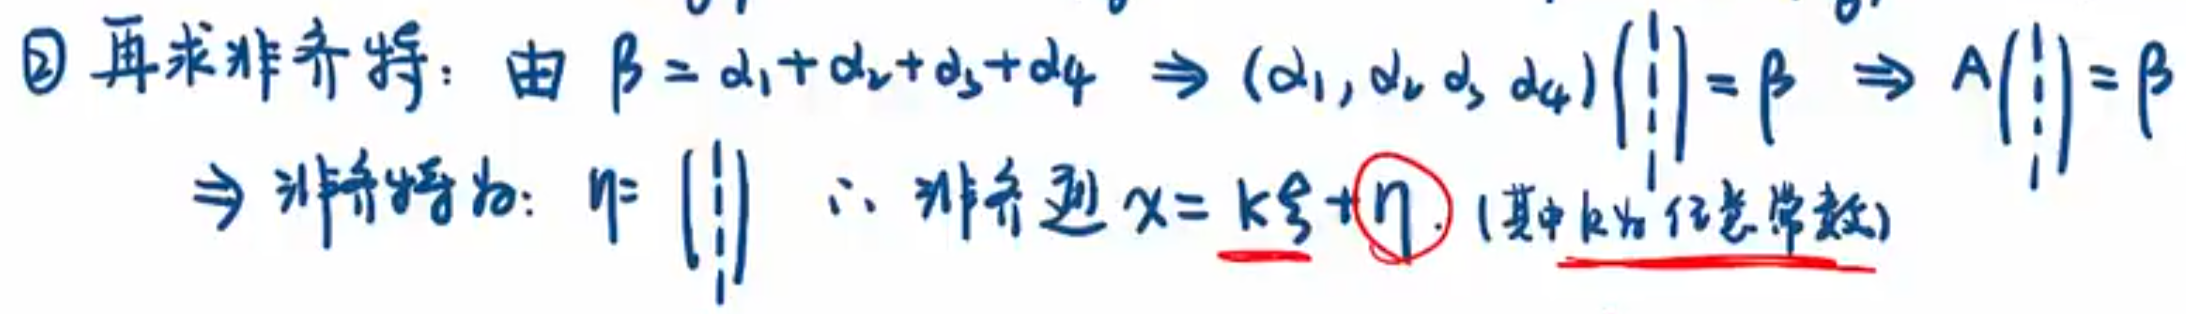 ② 再求非齐特: 由 β = α₁+α₂+α₃+α₄ ⇒ (α₁, α₂ α₃ α₄)(1 1 1 1) = β ⇒ A(1 1 1 1) = β
⇒ 非齐特为: η = (1 1 1 1) ∴ 非齐通 x = kξ+η. (其中k为任意常数)